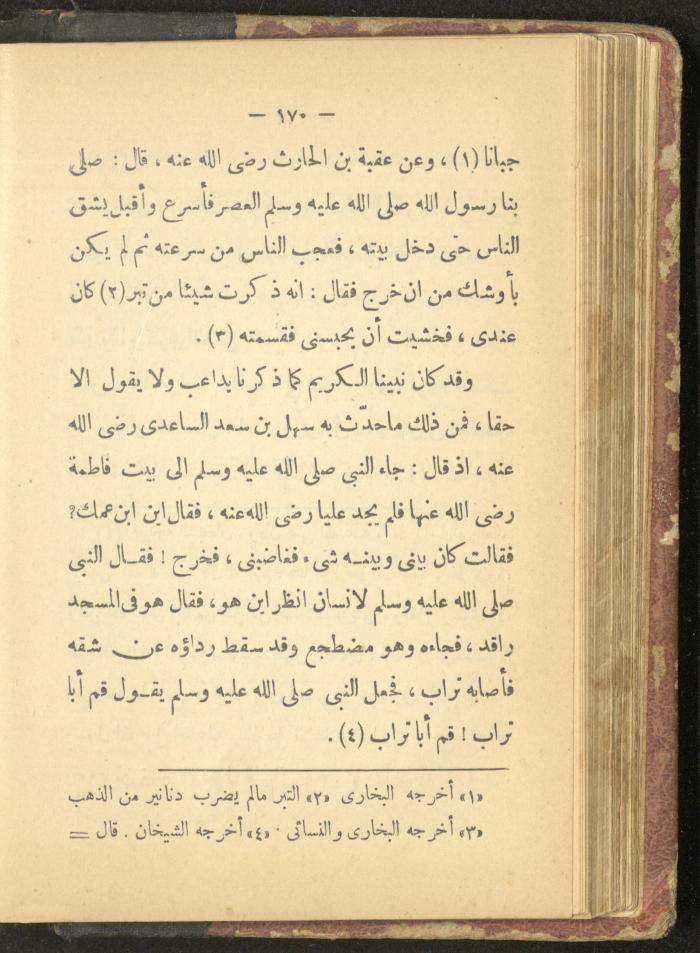 — ١٧٠ —
جبانا (١) ، وعن عقبة بن الحارث رضى الله عنه ، قال : صلى
بنا رسول الله صلى الله عليه وسلم العصر فأسرع وأقبل يشق
الناس حتى دخل بيته ، فعجب الناس من سرعته ثم لم يكن
بأوشك من ان خرج فقال : انه ذكرت شيئا من تبر (٢) كان
عندى ، فخشيت أن يحبسنى فقسمته (٣) .
وقد كان نبينا الكريم كما ذكرنا يداعب ولا يقول الا
حقا ، فمن ذلك ماحدّث به سهل بن سعد الساعدى رضى الله
عنه ، اذ قال : جاء النبى صلى الله عليه وسلم الى بيت فاطمة
رضى الله عنها فلم يجد عليا رضى الله عنه ، فقال اين ابن عمك؟
فقالت كان بينى وبينــه شىء فغاضبنى ، فخرج ! فقــال النبى
صلى الله عليه وسلم لانسان انظر اين هو ، فقال هو فى المسجد
راقد ، فجاءه وهو مضطجع وقد سقط رداؤه عن شقه
فأصابه تراب ، فجعل النبى صلى الله عليه وسلم يقــول قم أبا
تراب ! قم أبا تراب (٤) .
«١» أخرجه البخارى «٢» التبر مالم يضرب دنانير من الذهب
«٣» أخرجه البخارى والنسائى . «٤» أخرجه الشيخان . قال =